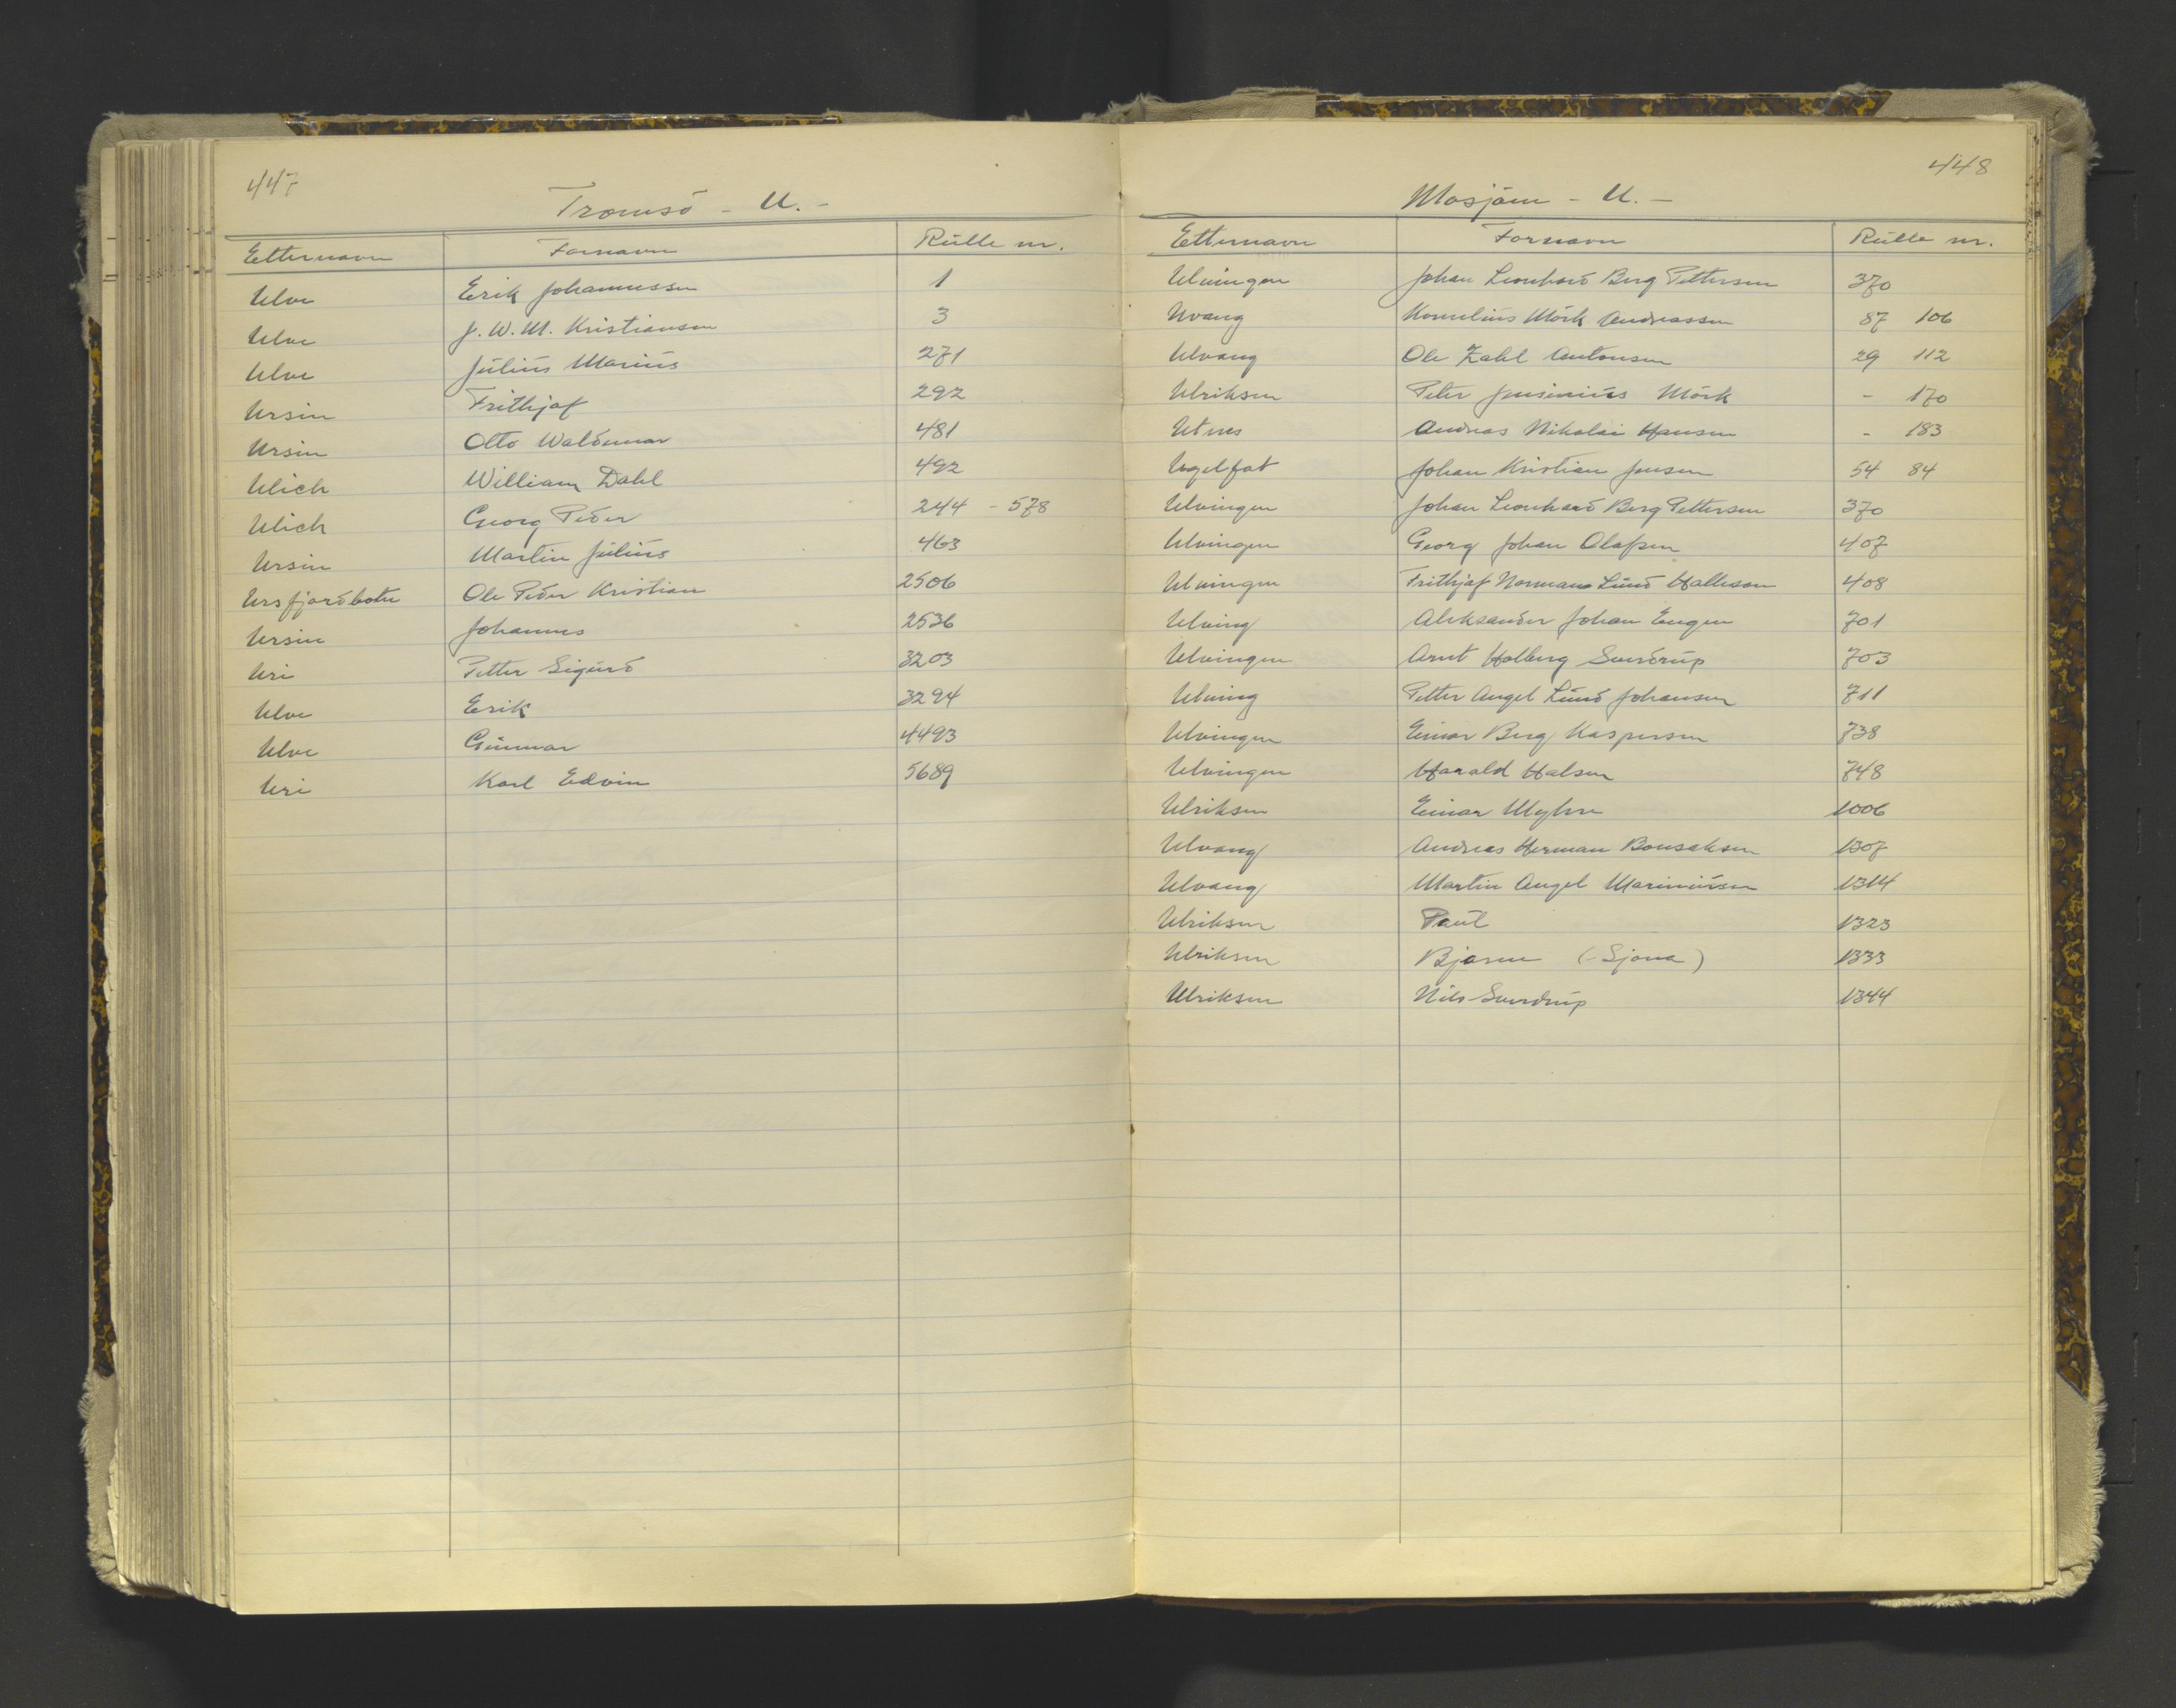 447
Tromsö - U. -
Etternavn Fornavn Rulle nr.
Ulve Erik Johannessen 1
Ulve J. W. M. Kristiansen 3
Ulve Julius Marius 271
Ursin Frithjof 292
Ursin Otto Waldemar 481
Ulich William Dahl 492
Ulich Georg Peder 244 - 578
Ursin Martin Julius 463
Ursfjordbotn Ole Peder Kristian 2506
Ursin Johannes 2536
Uri Petter Sigurd 3203
Ulve Erik 3294
Ulve Gunnar 4493
Uri Karl Edvin 5689
448
Mosjöen - U. -
Etternavn Fornavn Rulle nr.
Ulvingen Johan Leonhard Berg Pettersen 370
Uvang Kornelius Mörk Andreassen 87 106
Ulvang Ole Zahl Antonsen 29 112
Ulriksen Peter Jensenius Mörk - 170
Utnes Andreas Nikolai Hansen - 183
Ugelfat Johan Kristian Jensen 54 84
Ulvingen Johan Leonhard Berg Pettersen 370
Ulvingen Georg Johan Olafsen 407
Ulvingen Frithjof Normann Lund Hallesen 408
Ulving Aleksander Johan Eugen 701
Ulvingen Arnt Holberg Sverdrup 703
Ulving Petter Angel Lund Johansen 711
Ulvingen Einar Berg Kaspersen 738
Ulvingen Harald Halsen 748
Ulriksen Einar Myhre 1006
Ulvang Andreas Herman Bonsaksen 1307
Ulvang Martin Angel Mariniusen 1314
Ulriksen Paul 1323
Ulriksen Bjarne (Sjona) 1333
Ulriksen Nils Sverdrup 1344